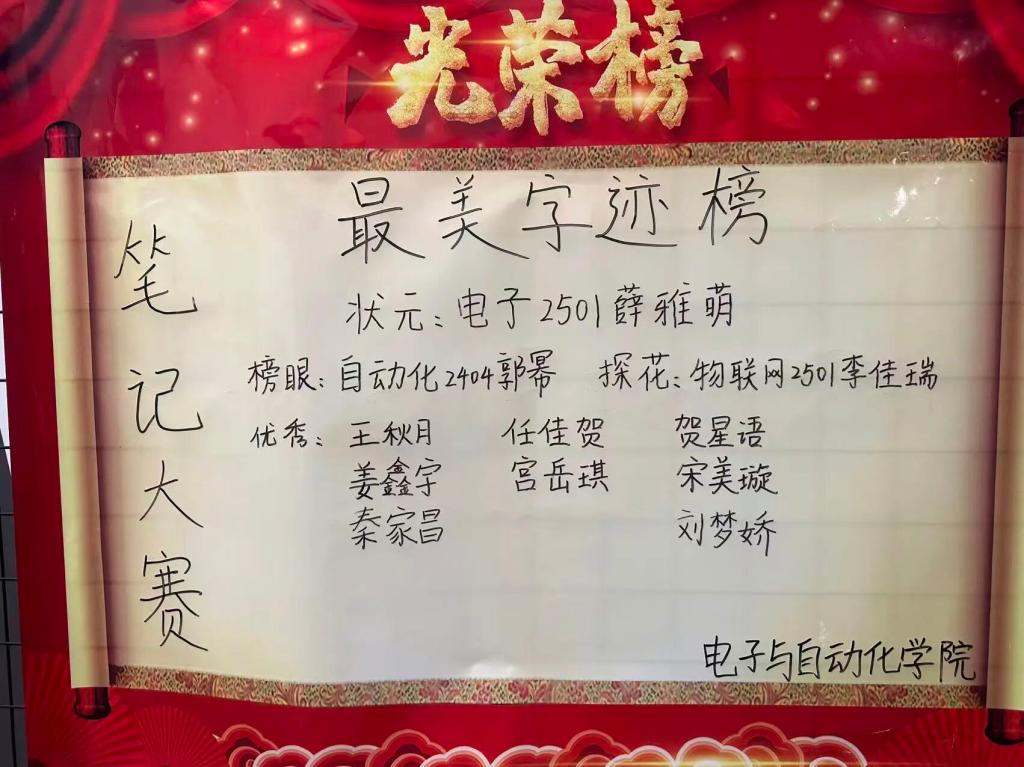 光荣榜
笔记大赛
最美字迹榜
状元：电子2501薛雅萌
榜眼：自动化2404郭幂 探花：物联网2501李佳瑞
优秀：王秋月 任佳贺 贺星语
姜鑫宇 宫岳琪 宋美璇
秦家昌 刘梦娇
电子与自动化学院